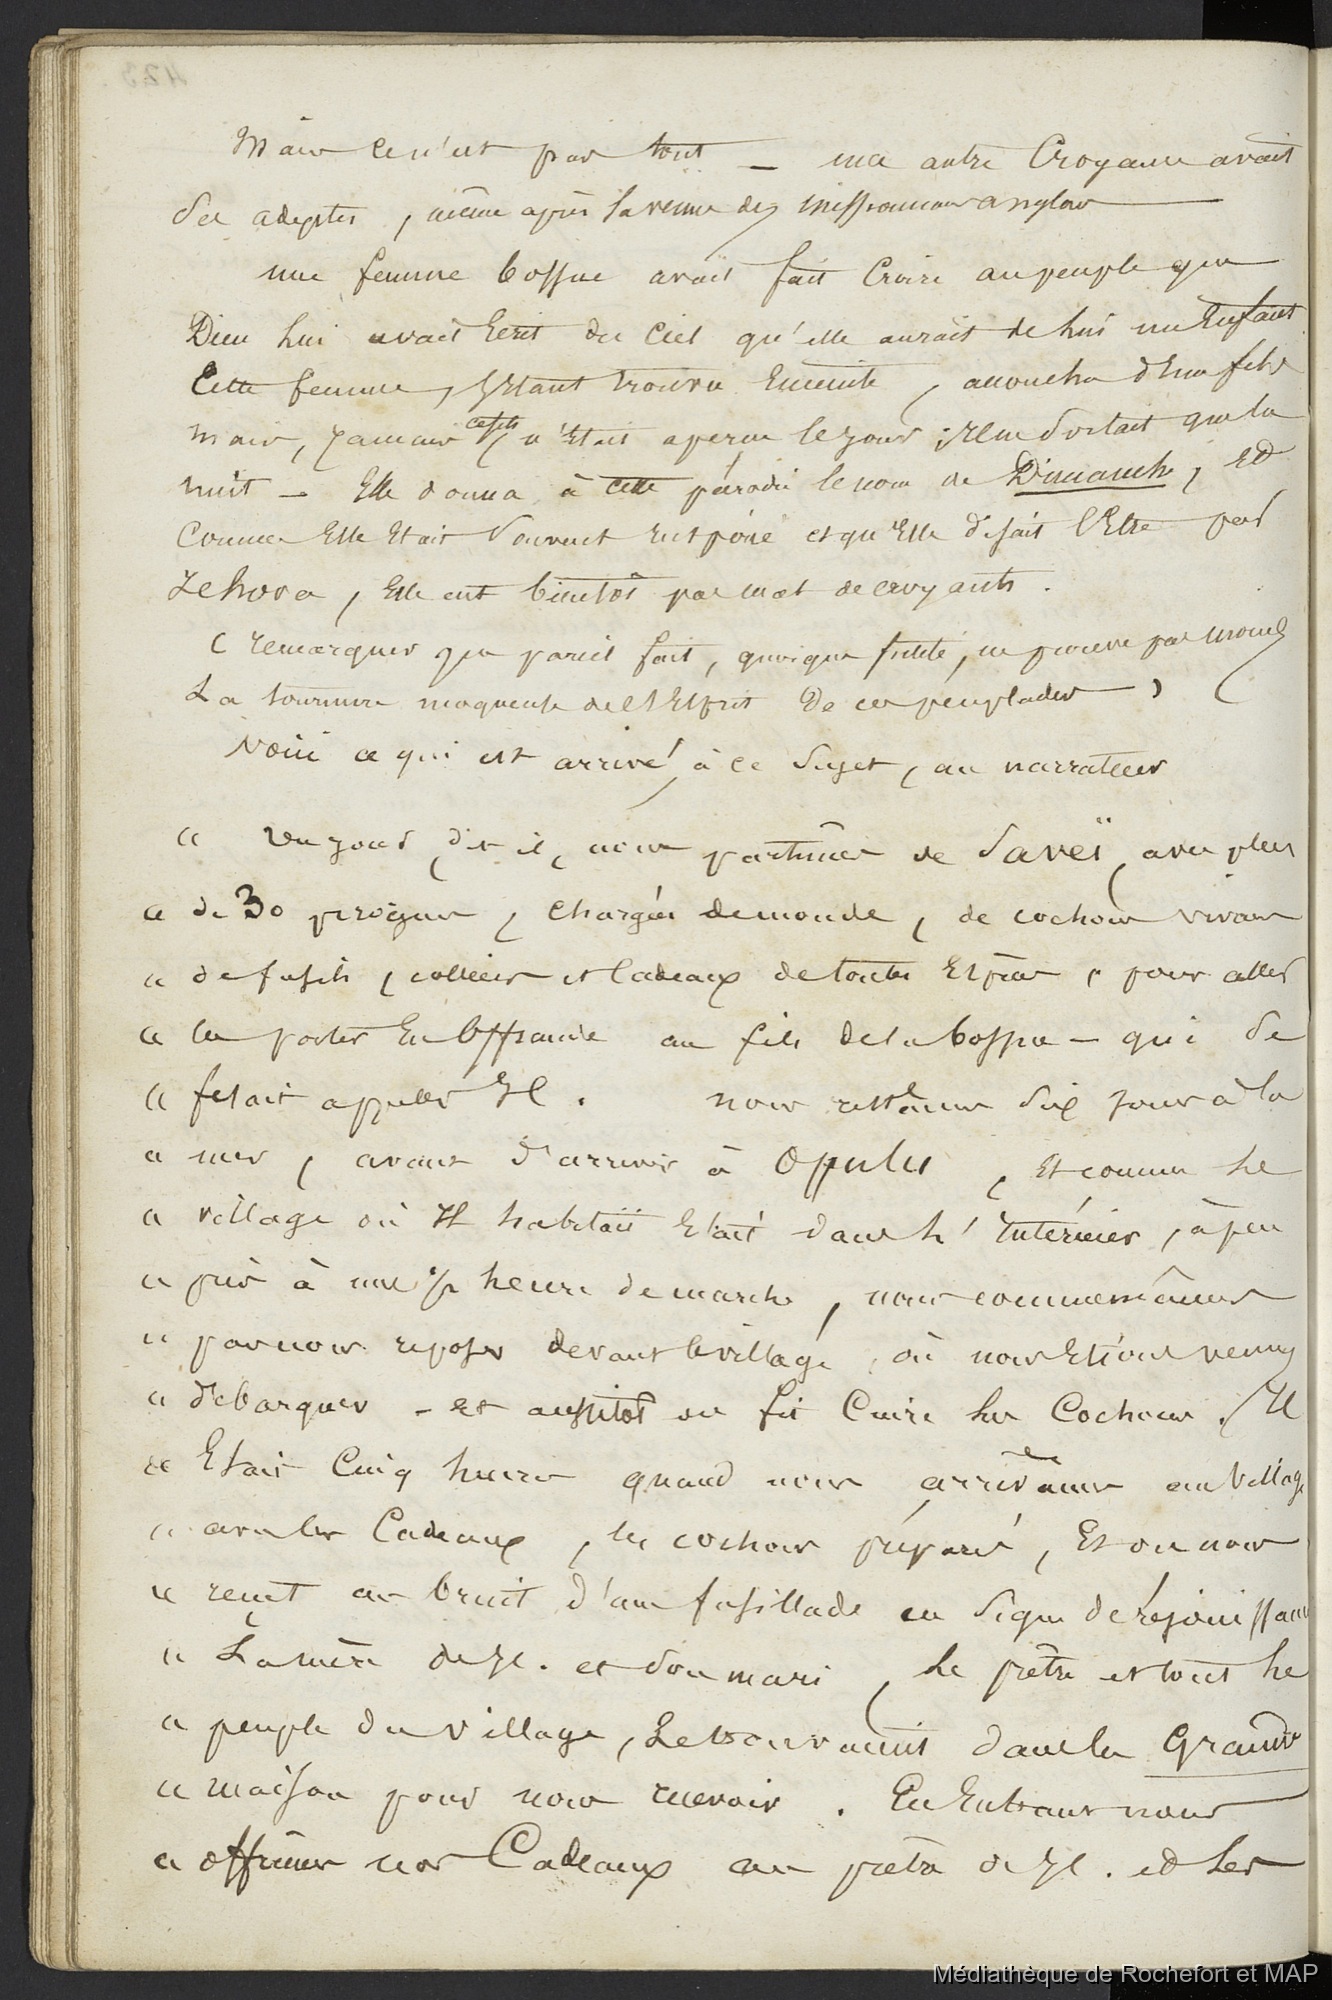 Mais ce n'est pas tout — une autre Croyance avait
des adeptes, même après la venue des missionnaires anglais
une femme bossue avait fait Croire au peuple que
Dieu lui avait Ecrit du Ciel qu'elle aurait de lui un Enfant
Cette femme, S'Etant trouvée Enceinte, accoucha d'un fils
mais, jamais ce fils n'Etait aperçu le jour; il ne Sortait que la
nuit — Elle donna à cette parodie le nom de Dimanche, Et
Comme Elle Etait Souvent inspirée et qu'Elle disait l'Etre par
Jehova, Elle eut bientôt pas mal de croyants.
( remarquer que pareil fait, quoique futile, ne prouve pas moins
La tournure moqueuse de l'Esprit De ces peuplades )
Voici ce qui est arrivé, à ce Sujet, au narrateur
" Un jour, dit il, nous partîmes de Savëi, avec plus
" de 30 pirogues, chargées de monde, de cochons vivans
" de fusils, colliers et Cadeaux de toutes Espèces, pour aller
" les porter En Offrande au fils de la bossue — qui Se
" fesait appeller Il. nous restâmes Six jours à la
" mer, avant d'arriver à Opulu, Et comme le
" village où Il habitait Etait dans l'intérieur, à peu
" près à une 1/2 heure de marche, nous commençâmes
" par nous reposer devant le village, où nous Etions venus
" débarquer — et aussitôt on fit Cuire les Cochons. Il
" Etait Cinq heures quand nous arrivâmes au Village
" avec les Cadeaux, les cochons préparés, Et on nous
" reçut au bruit d'une fusillade en Signe de réjouissance
" La mère de Il. et Son mari, le prêtre et tout le
" peuple du village, Se trouvaient dans la Grande
" maison pour nous recevoir. En Entrant nous
" offrîmes nos Cadeaux au prêtre de Il. et les
Médiathèque de Rochefort et MAP